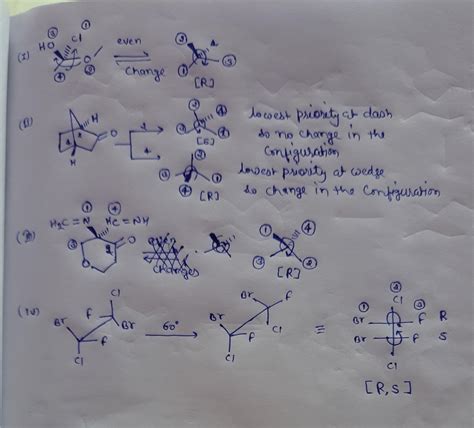 (I) HO ③ Cl ① O ② ④ even change ③ ④ 2 ① ③ [R]
(II) H O H 1 2 1 2 ② ④ ① ③ [S] lowest priority at dash
so no change in the
configuration
① ④ ② ③ [R] lowest priority at wedge
so change in the configuration
① ④
H₂C=N HC=NH
③ 2 O O even changes ① ④ ③ ② [R]
(IV) Cl Br F Br F Cl 60° Br F Cl Br F Cl ≡ Cl ① ② Br F R
Br F S
Cl
[R,S]